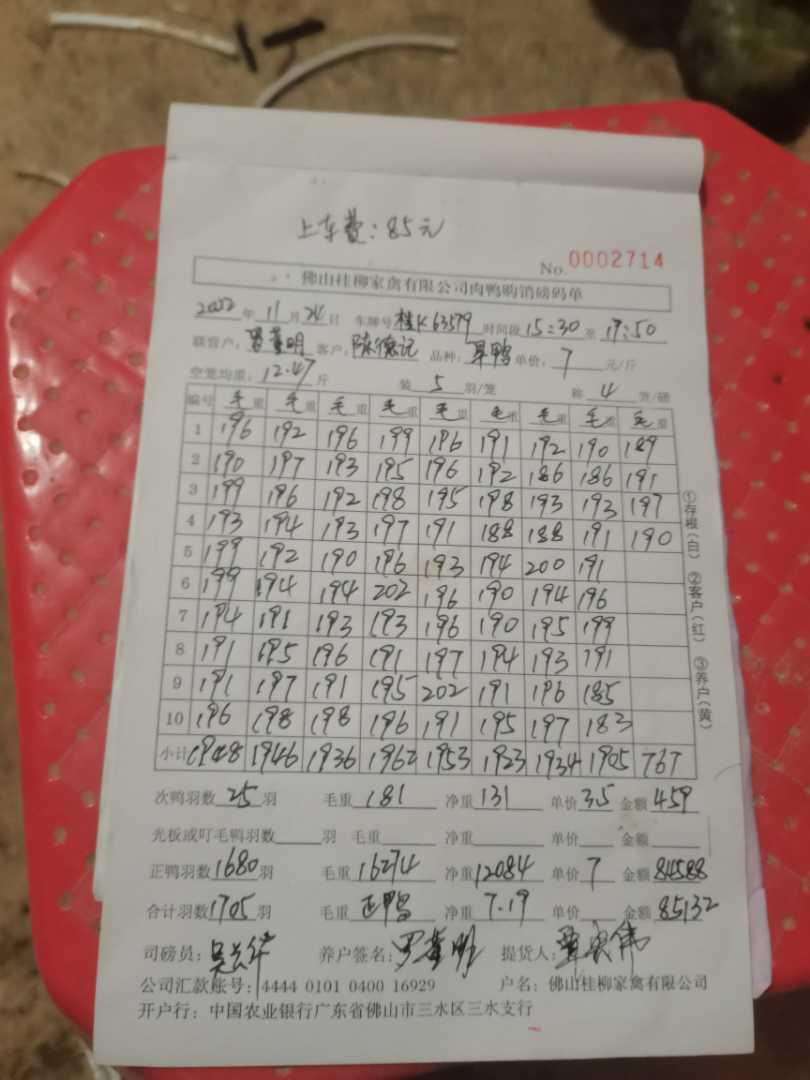 上车费：85元
No. 0002714
佛山桂柳家禽有限公司肉鸭购销磅码单
2022年11月24日 车牌号桂K63579 时间段15:30至17:50
联营户：罗董明 客户：陈德记 品种：旱鸭 单价：7元/斤
空笼均重：12.47斤 装5羽/笼 称4笼/磅
编号 毛重 毛重 毛重 毛重 毛重 毛重 毛重 毛重 毛重
1 196 192 196 199 196 191 192 190 189
2 190 197 193 195 196 192 186 186 191
3 199 196 192 198 195 198 193 193 197
4 193 194 193 197 191 188 188 191 190
5 199 192 190 196 193 194 200 191
6 199 194 194 202 196 190 194 196
7 194 191 193 193 196 190 195 199
8 191 195 196 191 197 194 193 191
9 191 197 191 195 202 191 196 185
10 196 198 198 196 191 195 197 183
小计 1948 1946 1936 1962 1953 1923 1934 1905 767
①存根（白） ②客户（红） ③养户（黄）
次鸭羽数25羽 毛重181 净重131 单价3.5 金额459
光板或叮毛鸭羽数 羽 毛重 净重 单价 金额
正鸭羽数1680羽 毛重16274 净重12084 单价7 金额84588
合计羽数1705羽 毛重正鸭 净重7.19 单价 金额85132
司磅员： 养户签名：罗董明 提货人：
公司汇款账号：4444 0101 0400 16929 户名：佛山桂柳家禽有限公司
开户行：中国农业银行广东省佛山市三水区三水支行